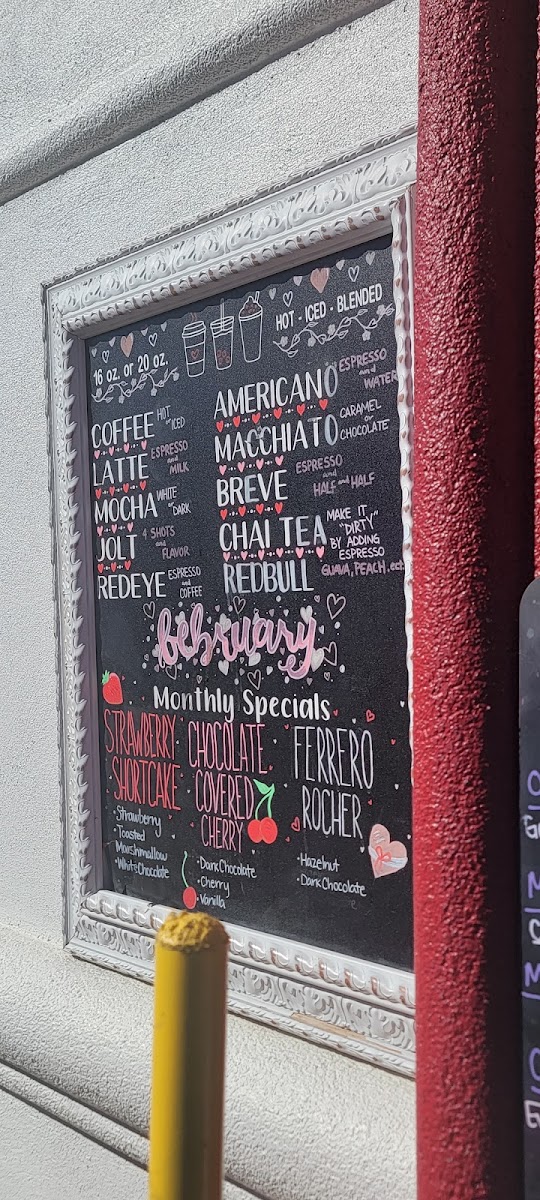 16 oz. or 20 oz.
HOT - ICED - BLENDED
COFFEE HOT or ICED
LATTE ESPRESSO and MILK
MOCHA WHITE or DARK
JOLT 4 SHOTS and FLAVOR
REDEYE ESPRESSO and COFFEE
AMERICANO ESPRESSO and WATER
MACCHIATO CARAMEL or CHOCOLATE
BREVE ESPRESSO and HALF and HALF
CHAI TEA MAKE IT "DIRTY" BY ADDING ESPRESSO
REDBULL GUAVA, PEACH, ect
february
Monthly Specials
STRAWBERRY
SHORTCAKE
• Strawberry
• Toasted
Marshmallow
• White Chocolate
CHOCOLATE
COVERED
CHERRY
• Dark Chocolate
• Cherry
• Vanilla
FERRERO
ROCHER
• Hazelnut
• Dark Chocolate